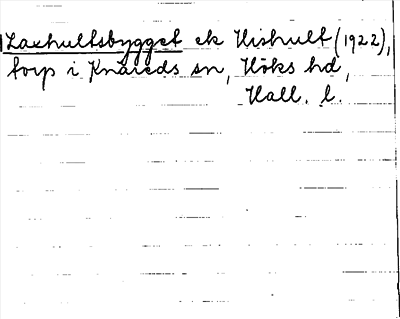 Laxhultsbygget ek Hishult (1922),
torp i Knäreds sn, Höks hd,
Hall. l.